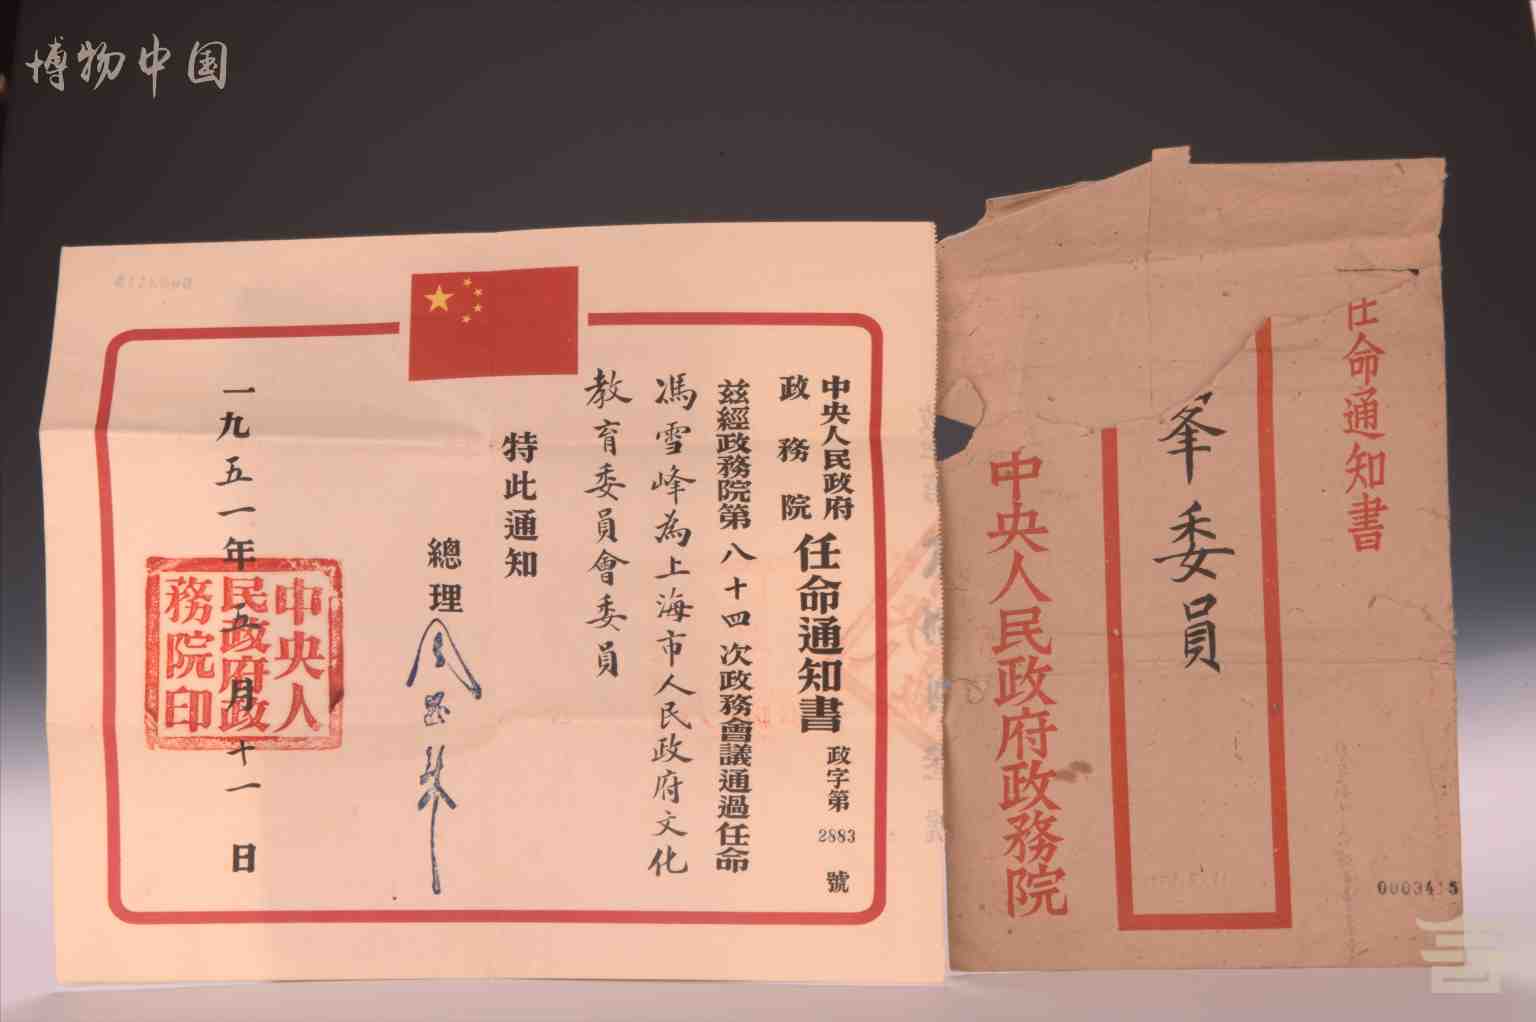 博物中国
中央人民政府
政務院
任命通知書
政字第2883號
兹經政務院第八十四次政務會議通過任命
馮雪峰為上海市人民政府文化
教育委員會委員
特此通知
總理周恩來
一九五一年五月十一日
中央人
民政府政
務院印
任命通知書
峯委員
中央人民政府政務院